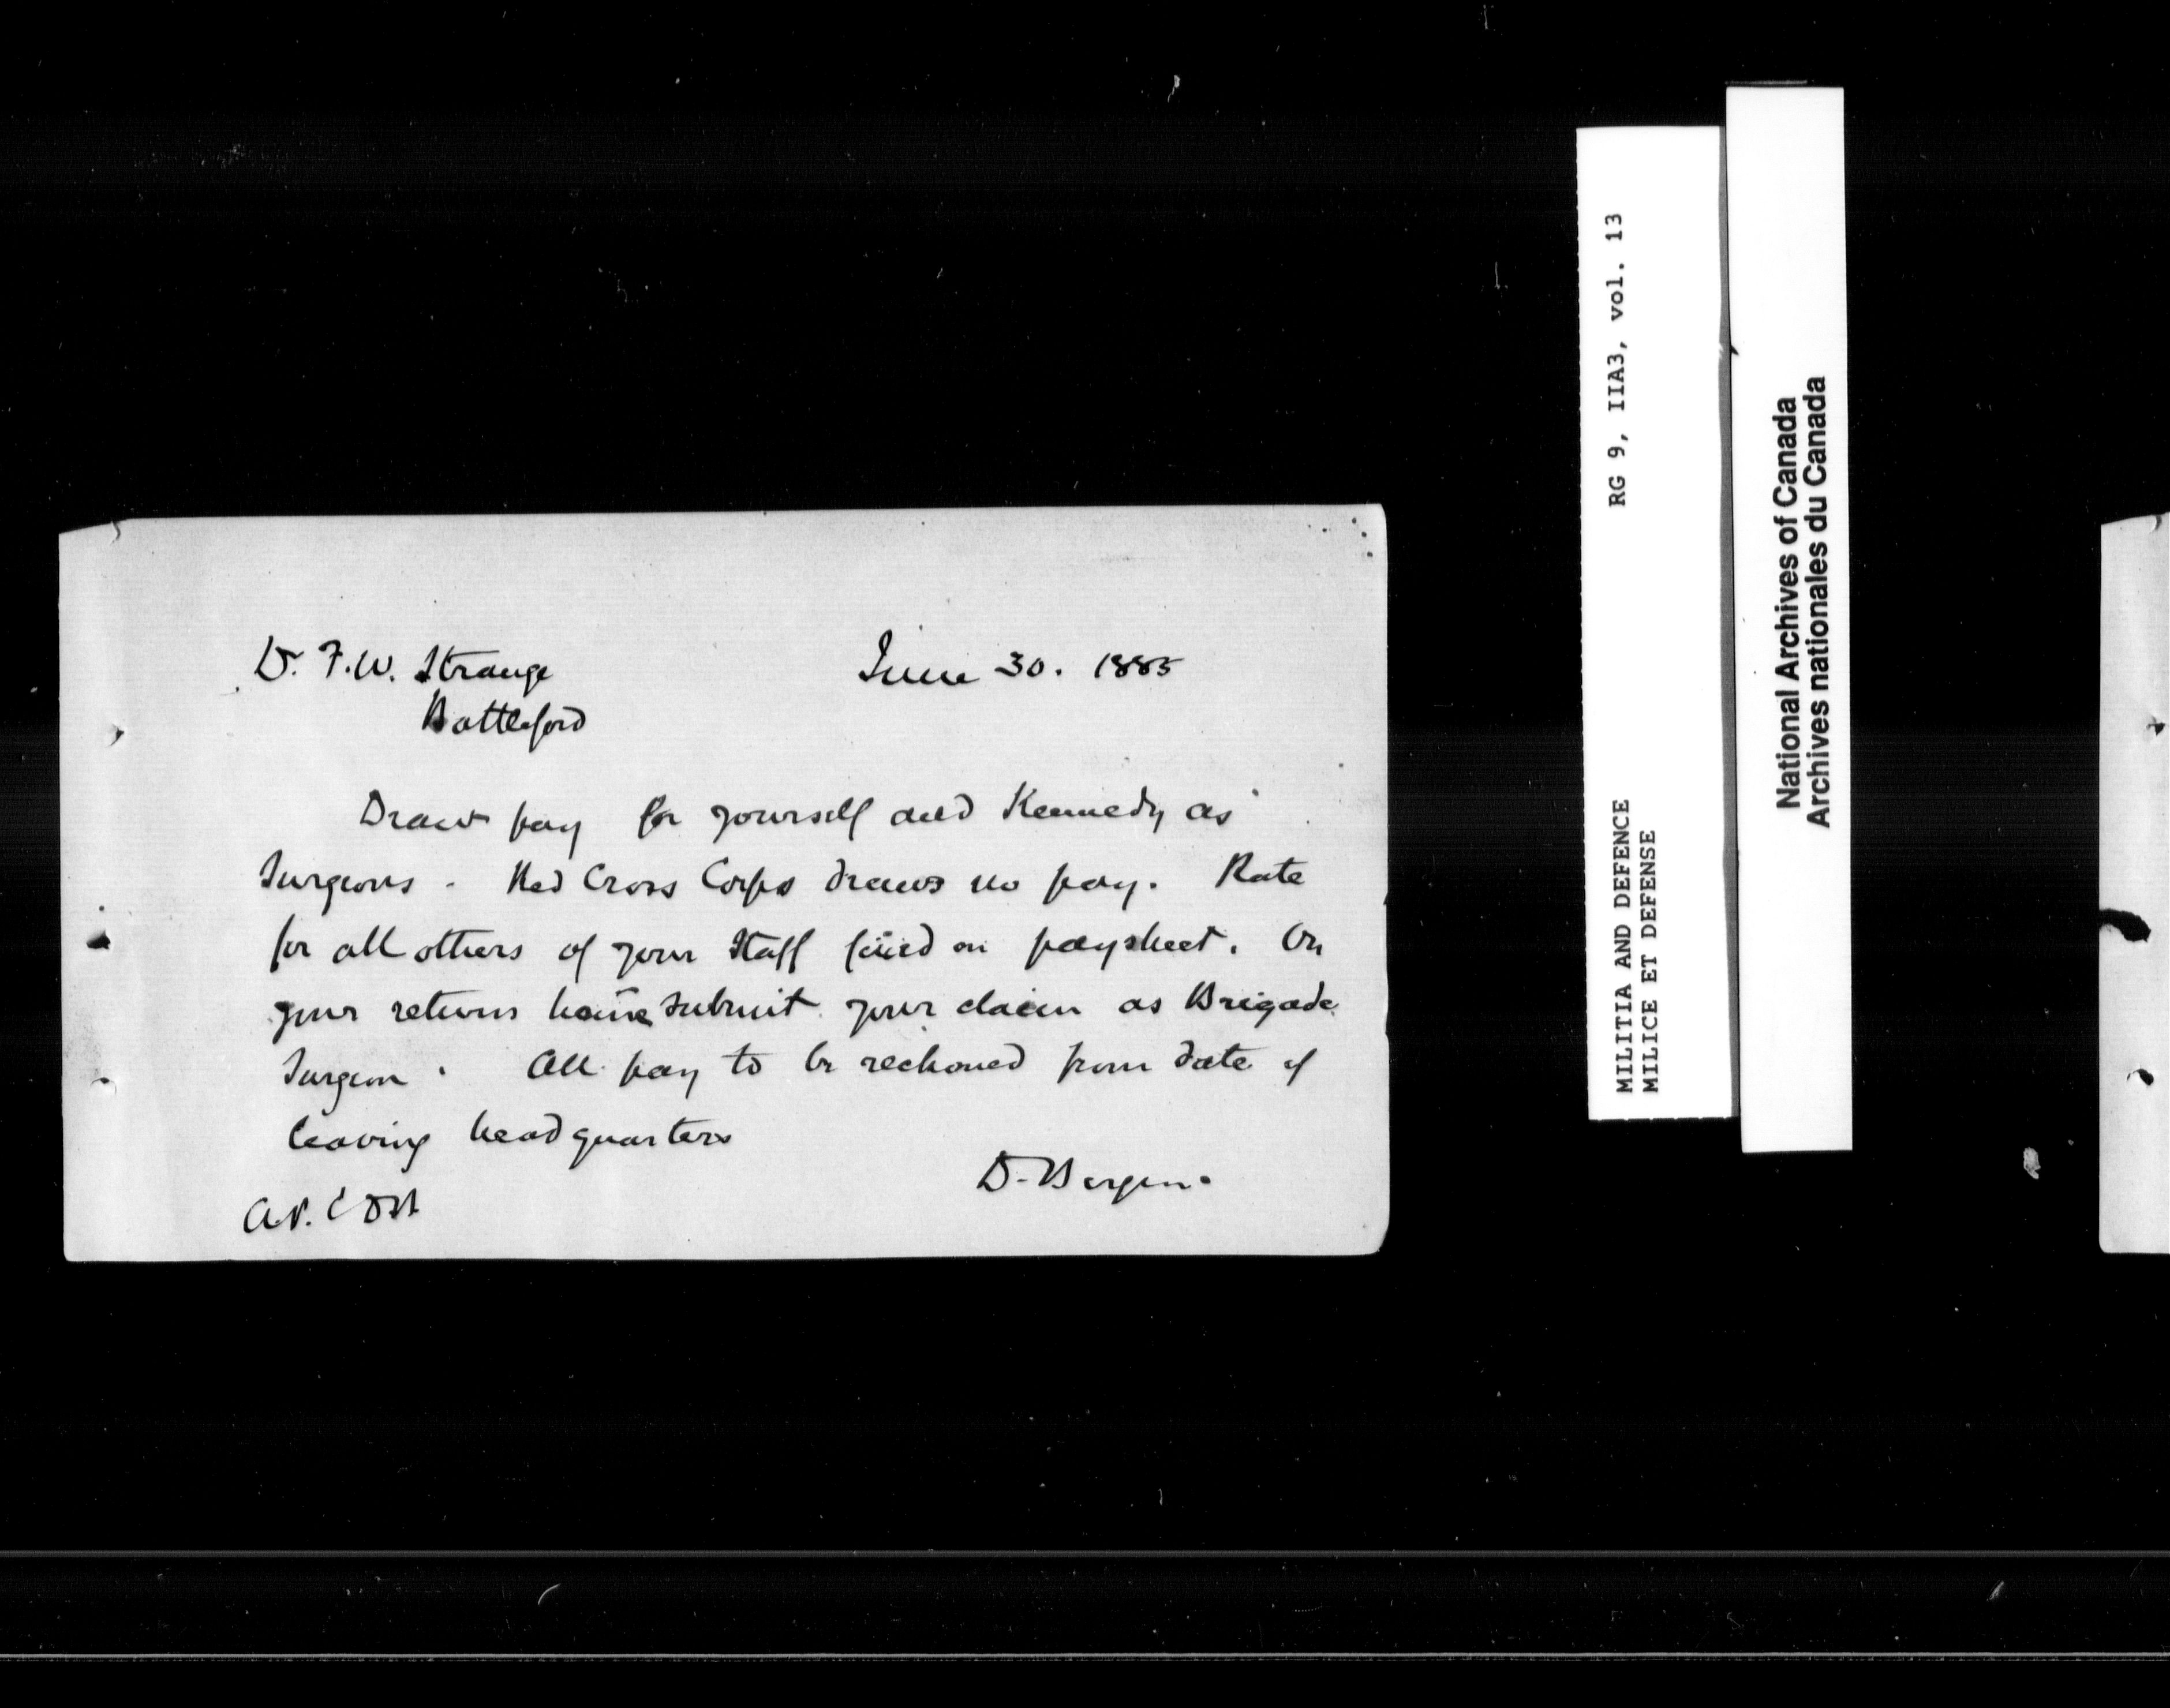 Dr. F.W. Strange
June 30. 1885
Battleford
Draw pay for yourself and Kennedy as
Surgeons - Red Cross Corps draws no pay. Rate
for all others of your Staff fixed on paysheet. On
your return home submit your claim as Brigade
Surgeon. All pay to be reckoned from date of
leaving headquarters
D. Bergin.
RG 9, IIA3, vol. 13
MILITIA AND DEFENCE
MILICE ET DEFENSE
National Archives of Canada
Archives nationales du Canada